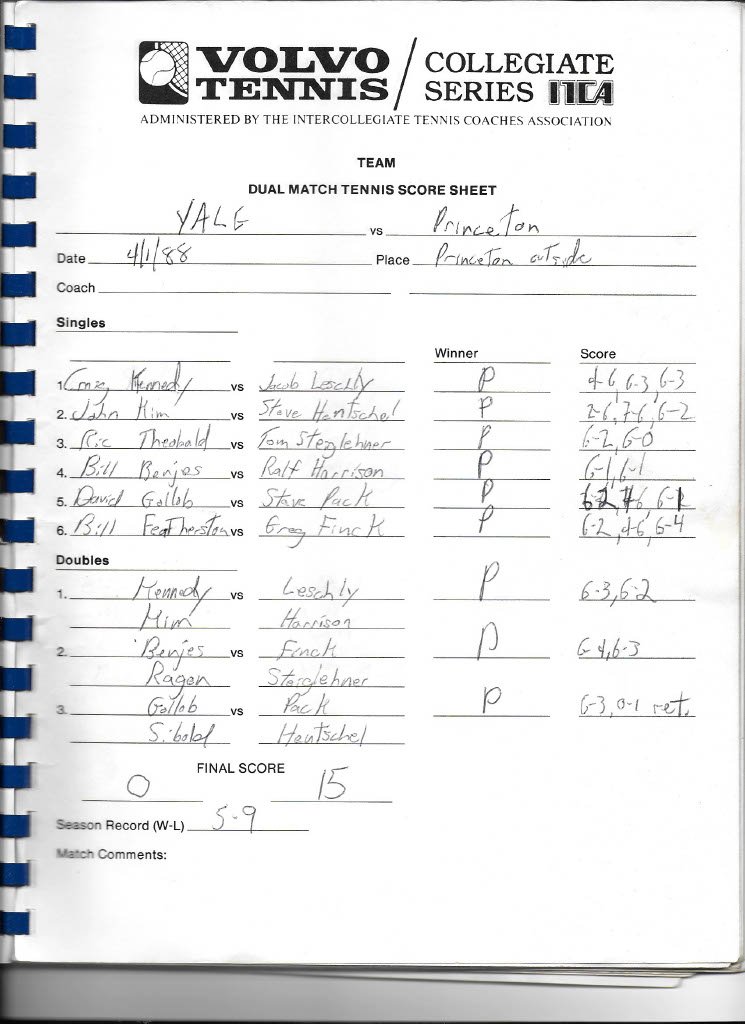 VOLVO TENNIS / COLLEGIATE SERIES ITCA
ADMINISTERED BY THE INTERCOLLEGIATE TENNIS COACHES ASSOCIATION
TEAM
DUAL MATCH TENNIS SCORE SHEET
YALE vs Princeton
Date 4/1/88 Place Princeton outside
Coach
Singles
Winner Score
1. Craig Kennedy vs Jacob Leschly P 4-6, 6-3, 6-3
2. John Kim vs Steve Hentschel P 2-6, 7-6, 6-2
3. Ric Theobald vs Tom Sterglehner P 6-2, 6-0
4. Bill Benjes vs Ralf Harrison P 6-1, 6-1
5. David Gollob vs Steve Pack P
6. Bill Featherston vs Greg Finck P 6-2, 4-6, 6-4
Doubles
1. Kennedy vs Leschly P 6-3, 6-2
Kim Harrison
2. Benjes vs Finck P 6-4, 6-3
Ragen Sterglehner
3. Gollob vs Pack P 6-3, 0-1 ret.
Sibold Hentschel
FINAL SCORE
0 15
Season Record (W-L) 5-9
Match Comments: